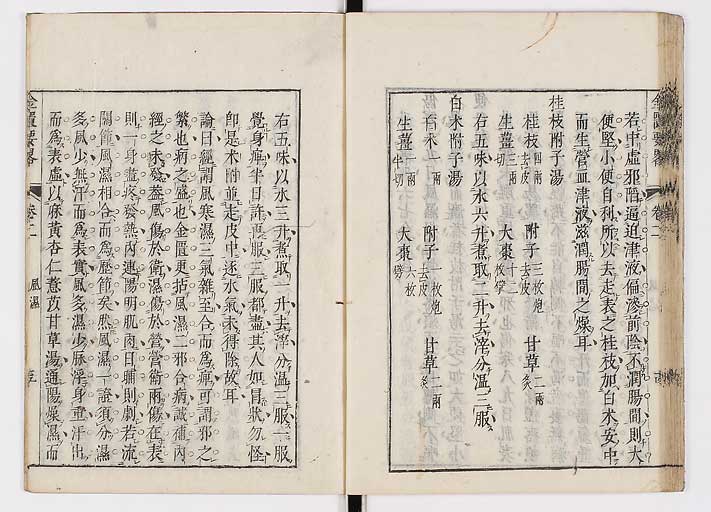 若中虛邪階逼迫津液偏滲前陰不潤腸間則大
便堅小便自利所以去走表之桂枝加白术安中
而生營血津液滋潤腸間之燥耳
桂枝附子湯
桂枝四兩去皮 附子三枚炮去皮 甘草二兩炙
生薑三兩切 大棗十二枚擘
右五味以水六升煮取二升去滓分溫三服
白术附子湯
白术一兩 附子一枚炮去皮 甘草二兩炙
生薑一兩半切 大棗六枚擘
金匱要畧 卷二
右五味以水三升煮取一升去滓分溫三服一服
覺身痺半日許再服三服都盡其人如冒狀勿怪
卽是术附並走皮中逐水氣未得除故耳
論曰經謂風寒濕三氣雜至合而爲痺可謂邪之
繁也病之盛也金匱更拈風濕二邪合病識補內
經之未發葢風傷於衛濕傷於營營衛兩傷在表
則一身盡疼發熱內連陽明肌肉日晡則劇若流
關節風濕相合而爲歷節矣然風濕一證須分濕
多風少無汗而爲表實風多濕少脉浮身重汗出
而爲表虛以麻黃杏仁薏苡甘草湯通陽燥濕而
金匱要畧 卷二 風濕